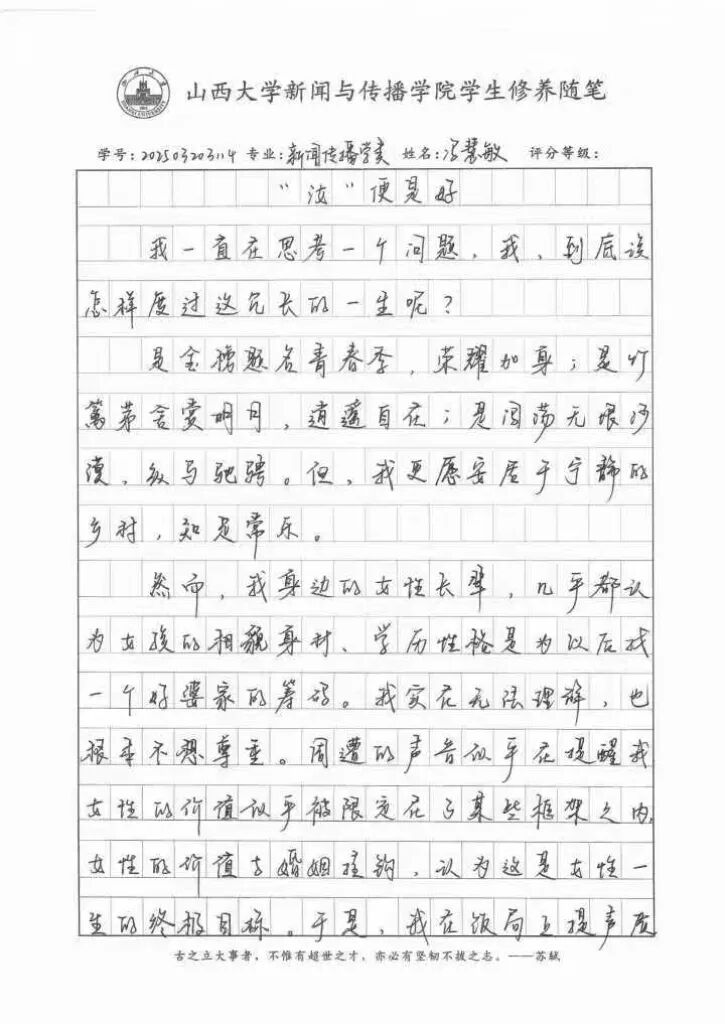 山西大学新闻与传播学院学生修养随笔
学号:202503203114 专业:新闻传播学类 姓名:冯慧敏 评分等级:
“汝”便是好
我一直在思考一个问题,我,到底该
怎样度过这冗长的一生呢?
是金榜题名青春季,荣耀加身;是灯
篱茅舍赏明月,逍遥自在;是阔荡无垠沙
漠,纵马驰骋。但,我更愿安居于宁静的
乡村,知足常乐。
然而,我身边的女性长辈,几乎都认
为女孩的相貌身材、学历性格是为以后找
一个好婆家的筹码。我实在无法理解,也
根本不想尊重。周遭的声音似乎在提醒我
女性的价值似乎被限定在了某些框架之内,
女性的价值与婚姻挂钩,认为这是女性一
生的终极目标。于是,我在饭局上提声质
古之立大事者,不惟有超世之才,亦必有坚韧不拔之志。——苏轼